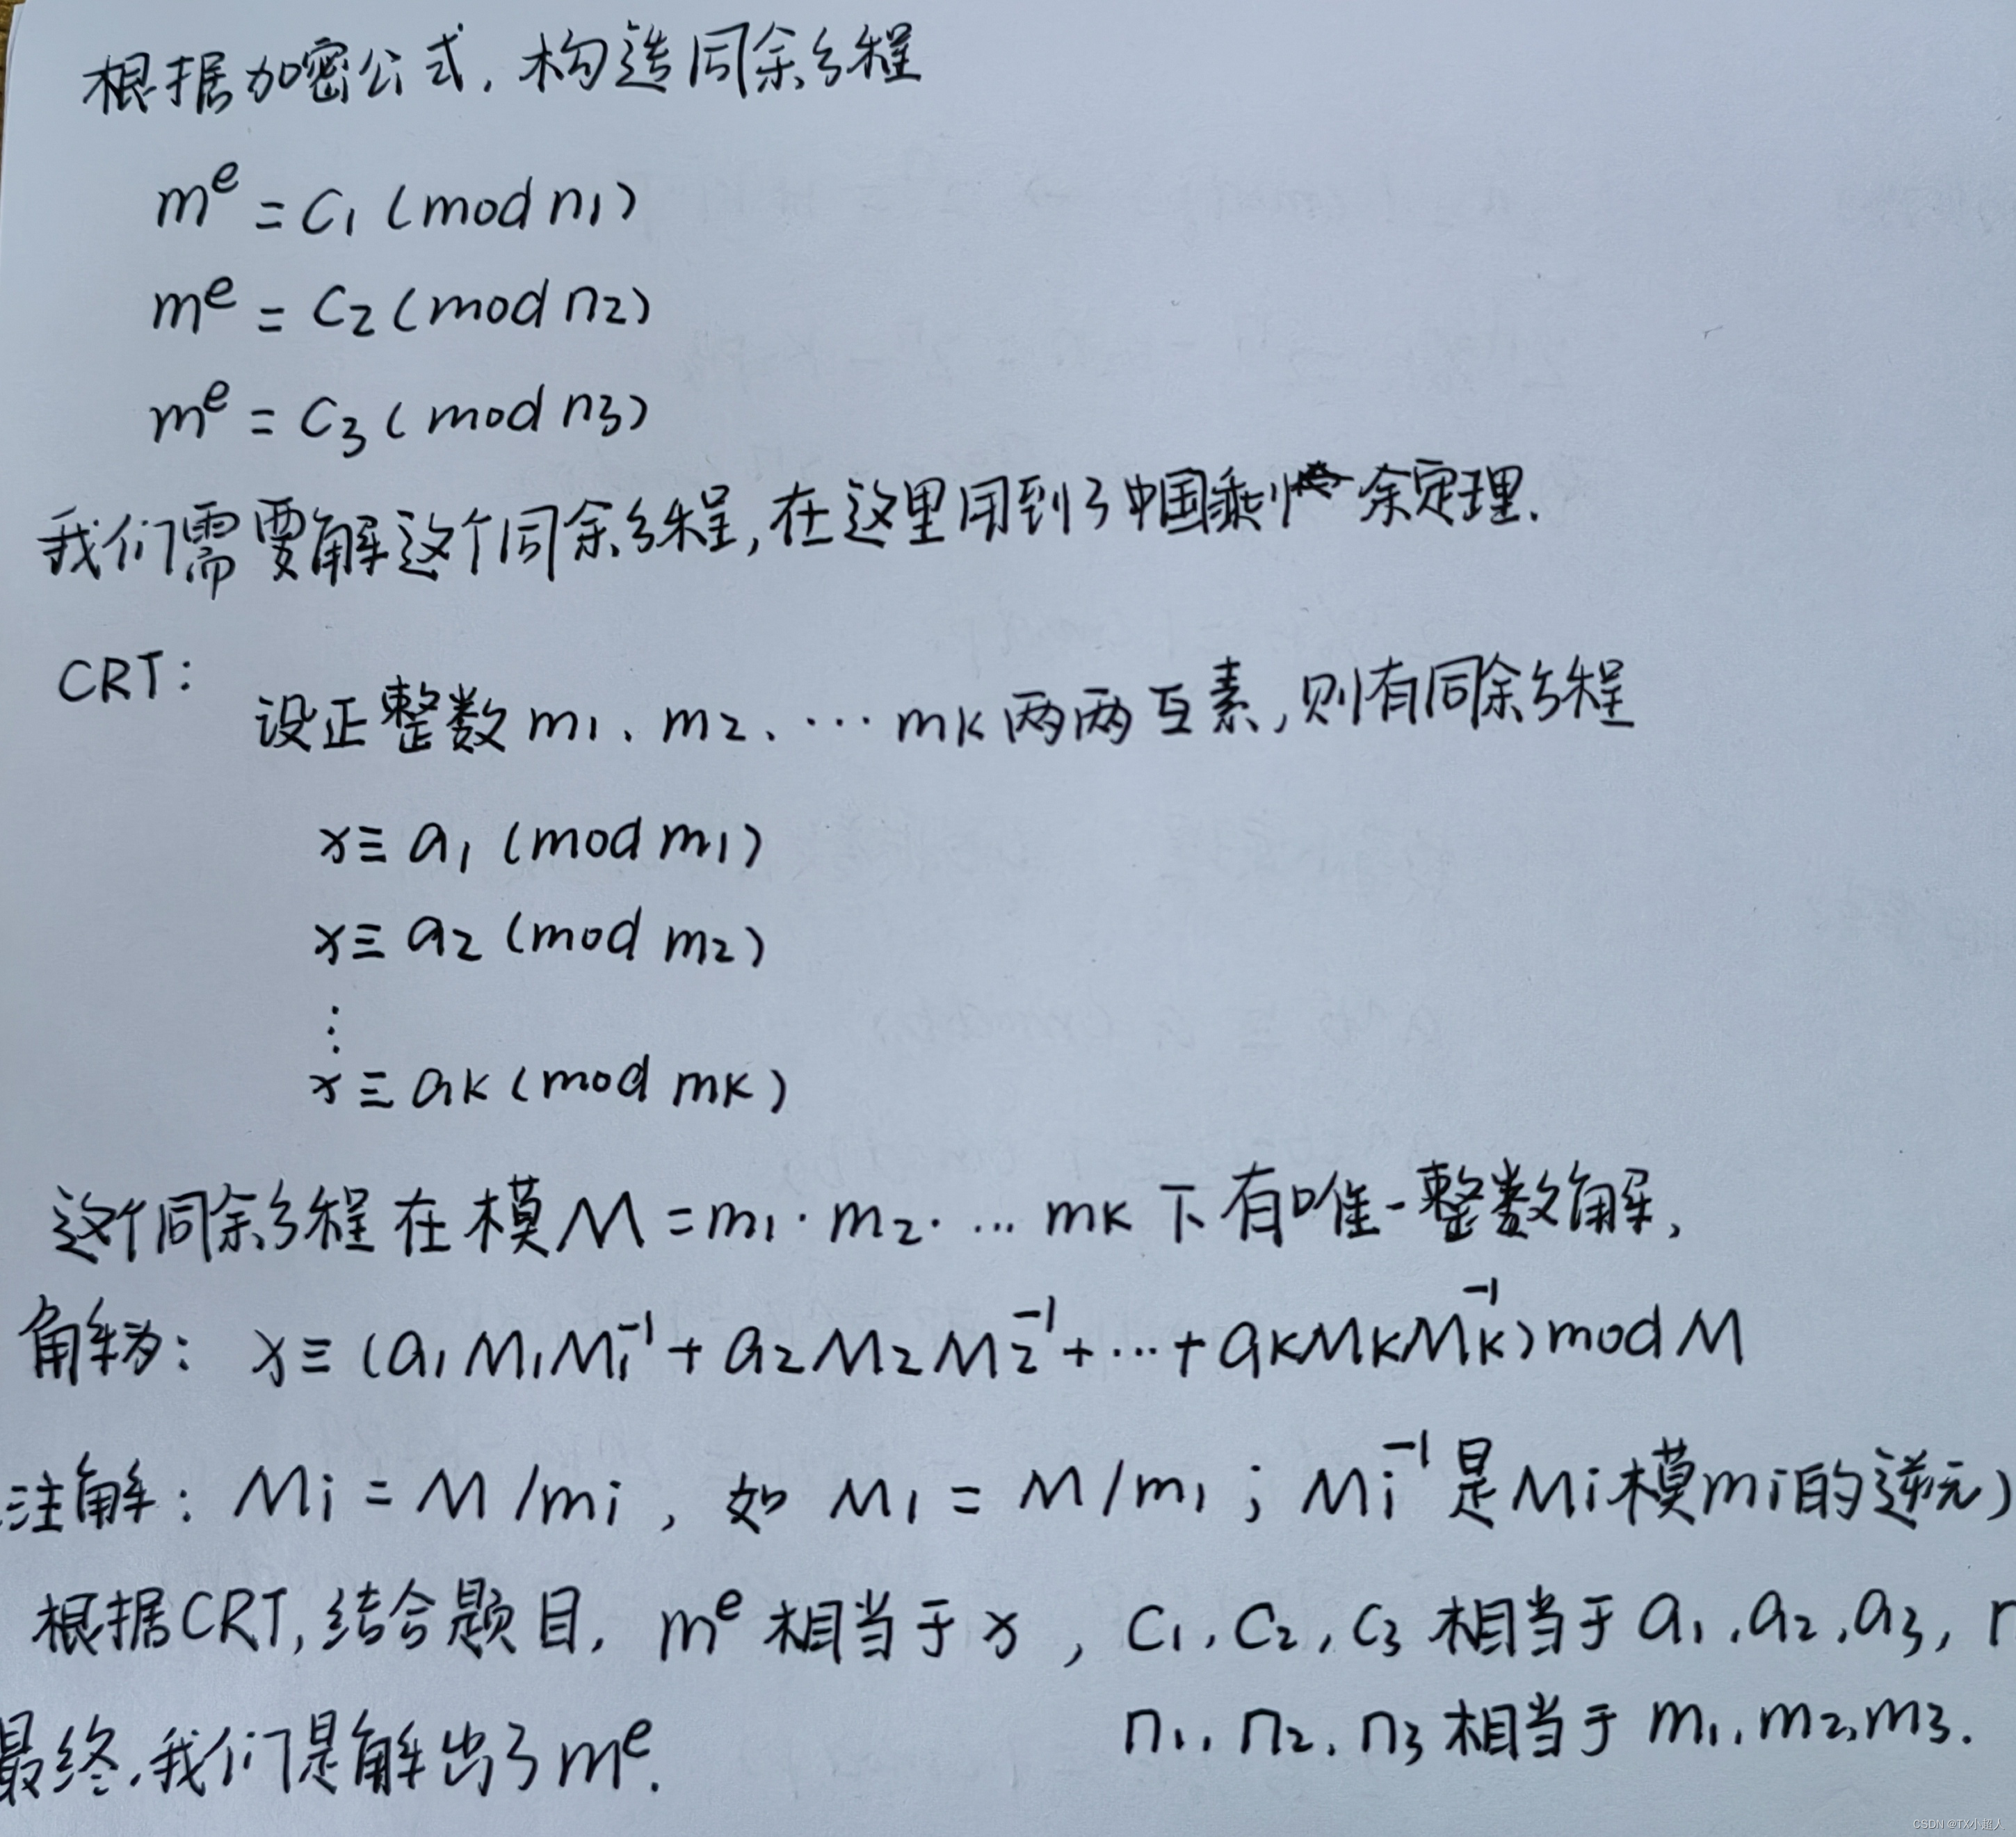 根据加密公式,构造同余方程
m^e = C1 (mod n1)
m^e = C2 (mod n2)
m^e = C3 (mod n3)
我们需要解这个同余方程,在这里用到了中国乘余定理.
CRT:
设正整数m1、m2、…mk两两互素,则有同余方程
x≡a1 (mod m1)
x≡a2 (mod m2)
⋮
x≡ak (mod mk)
这个同余方程在模M=m1·m2·…mk下有唯一整数解,
解为: x≡(a1M1M1^-1+a2M2M2^-1+…+akMkMk^-1)mod M
注解: Mi=M/mi,如 M1=M/m1;Mi^-1是Mi模mi的逆元)
根据CRT,结合题目, m^e相当于x,C1,C2,C3相当于a1,a2,a3,
n1,n2,n3相当于m1,m2,m3.
最终,我们是解出了m^e.
CSDN @TX小超人